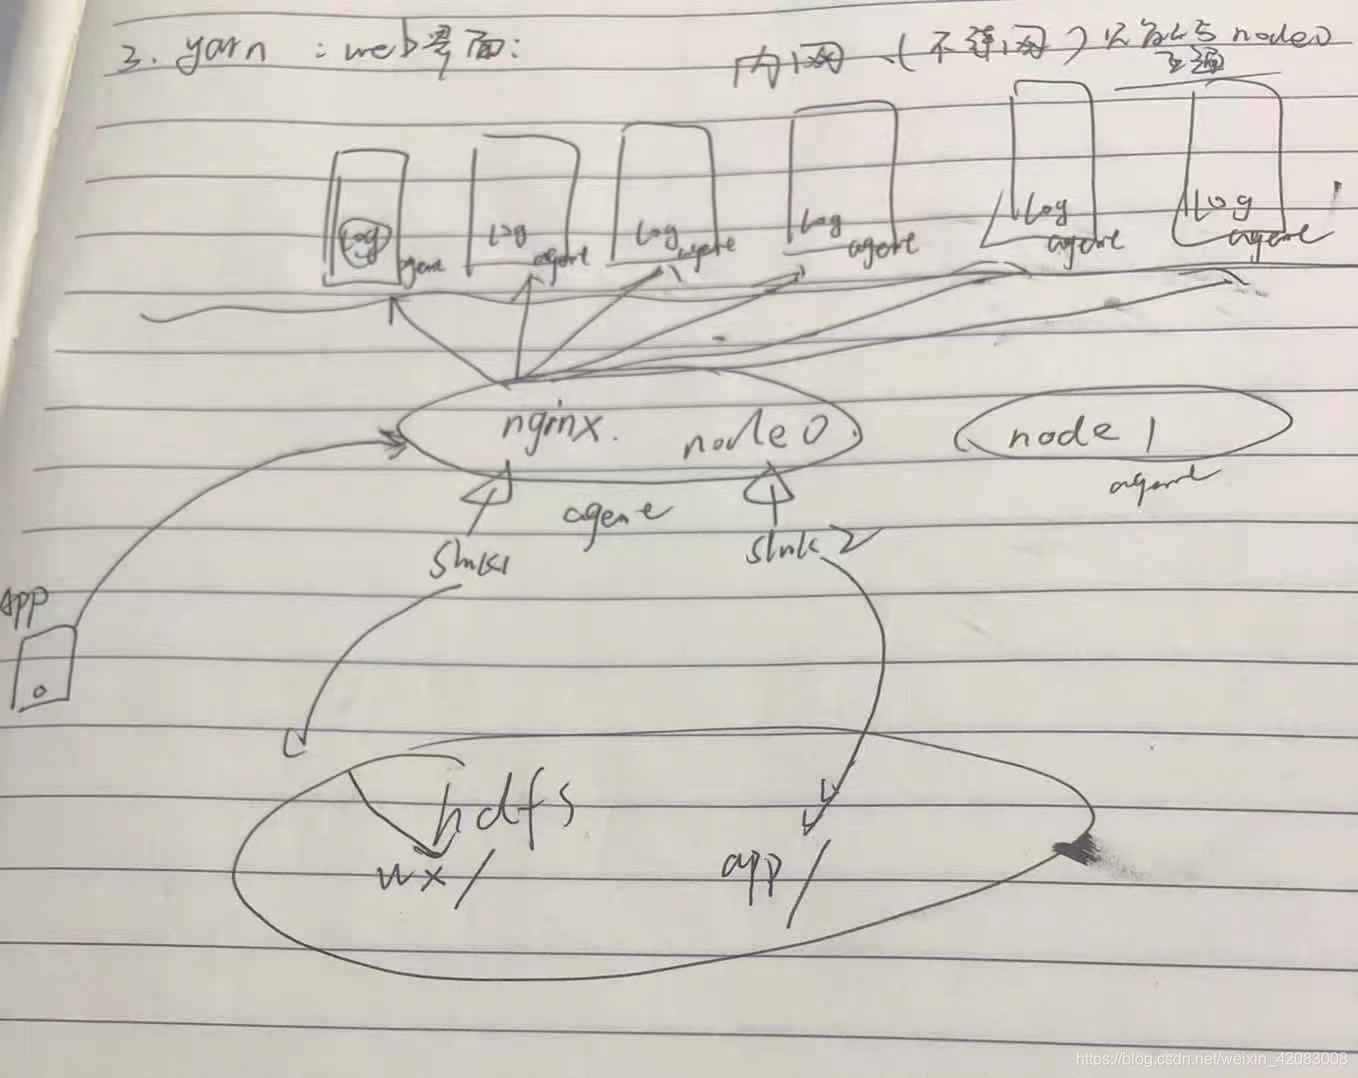 3. yarn : web界面:
内网 (不连网) 只能与 node0
互通
Log agent
Log agent
Log agent
Log agent
Log agent
Log agent
nginx. node 0
node 1
agent
agent
sink1
sink 2
app
hdfs
wx/
app/
https://blog.csdn.net/weixin_42083008